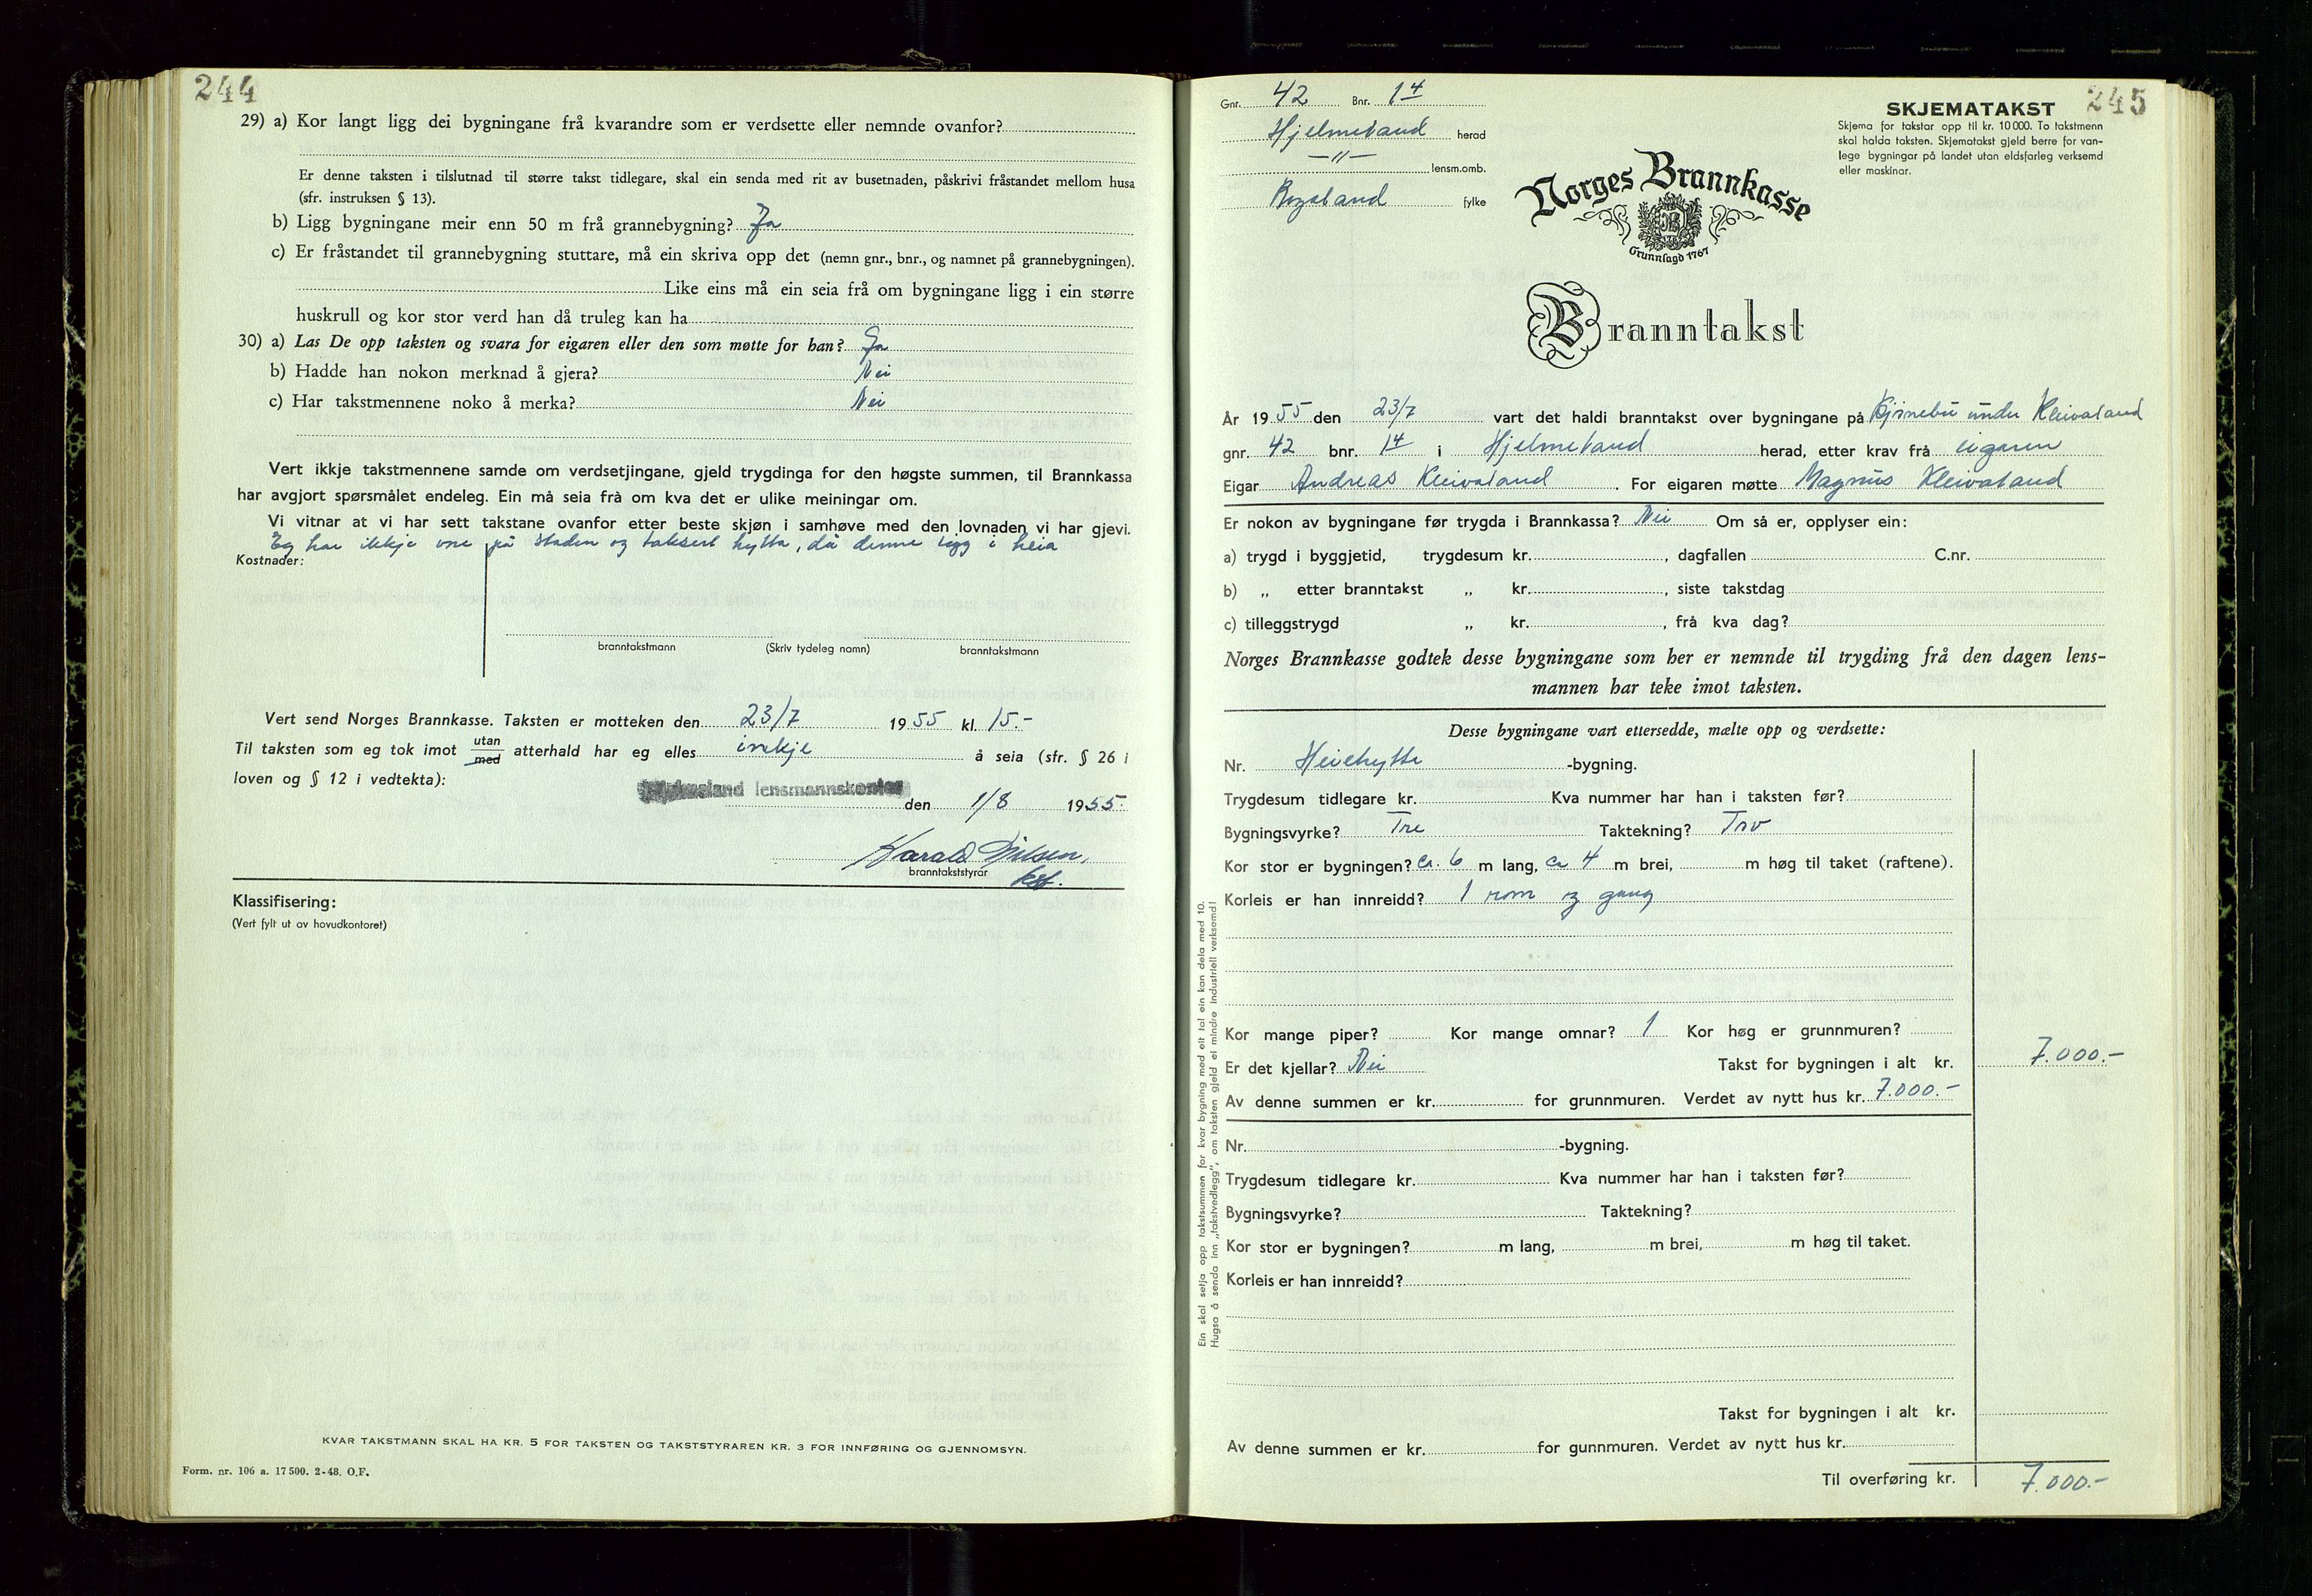 244
29) a) Kor langt ligg dei bygningane frå kvarandre som er verdsette eller nemnde ovanfor?
Er denne taksten i tilslutnad til større takst tidlegare, skal ein senda med rit av busetnaden, påskrivi fråstandet mellom husa
(sfr. instruksen § 13).
b) Ligg bygningane meir enn 50 m frå grannebygning? Ja
c) Er fråstandet til grannebygning stuttare, må ein skriva opp det (nemn gnr., bnr., og namnet på grannebygningen).
Like eins må ein seia frå om bygningane ligg i ein større
huskrull og kor stor verd han då truleg kan ha
30) a) Las De opp taksten og svara for eigaren eller den som møtte for han? Ja
b) Hadde han nokon merknad å gjera? Nei
c) Har takstmennene noko å merka? Nei
Vert ikkje takstmennene samde om verdsetjingane, gjeld trygdinga for den høgste summen, til Brannkassa
har avgjort spørsmålet endeleg. Ein må seia frå om kva det er ulike meiningar om.
Vi vitnar at vi har sett takstane ovanfor etter beste skjøn i samhøve med den lovnaden vi har gjevi.
Eg har ikkje vore på staden og taksert hytta, då denne ligg i heia
Kostnader:
branntakstmann (Skriv tydeleg namn) branntakstmann
Vert send Norges Brannkasse. Taksten er motteken den 23/7 1955 kl. 15.-
Til taksten som eg tok imot utan/med atterhald har eg elles inkje å seia (sfr. § 26 i
loven og § 12 i vedtekta):
lensmannskontor den 1/8 1955.
Harald Nilsen,
branntakststyrar kst.
Klassifisering:
(Vert fylt ut av hovudkontoret)
KVAR TAKSTMANN SKAL HA KR. 5 FOR TAKSTEN OG TAKSTSTYRAREN KR. 3 FOR INNFØRING OG GJENNOMSYN.
Form. nr. 106 a. 17 500. 2-48. O.F.
245
Gnr. 42 Bnr. 14
Hjelmeland herad
—"— lensm.omb.
Rogaland fylke
SKJEMATAKST
Skjema for takstar opp til kr. 10 000. To takstmenn
skal halda taksten. Skjematakst gjeld berre for van-
lege bygningar på landet utan eldsfarleg verksemd
eller maskinar.
Norges Brannkasse
Grunnlagd 1767
Branntakst
År 1955 den 23/7 vart det haldi branntakst over bygningane på Bjørnebu under Kleivaland
gnr. 42 bnr. 14 i Hjelmeland herad, etter krav frå eigaren
Eigar Andreas Kleivaland. For eigaren møtte Magnus Kleivaland
Er nokon av bygningane før trygda i Brannkassa? Nei Om så er, opplyser ein:
a) trygd i byggjetid, trygdesum kr. , dagfallen C.nr.
b) „ etter branntakst „ kr. , siste takstdag
c) tilleggstrygd „ kr. , frå kva dag?
Norges Brannkasse godtek desse bygningane som her er nemnde til trygding frå den dagen lens-
mannen har teke imot taksten.
Desse bygningane vart ettersedde, mælte opp og verdsette:
Nr. Heiehytte -bygning.
Trygdesum tidlegare kr. Kva nummer har han i taksten før?
Bygningsvyrke? Tre Taktekning? Torv
Kor stor er bygningen? ca. 6 m lang, ca 4 m brei, m høg til taket (raftene).
Korleis er han innreidd? 1 rom og gang
Kor mange piper? Kor mange omnar? 1 Kor høg er grunnmuren?
Er det kjellar? Nei Takst for bygningen i alt kr. 7.000.-
Av denne summen er kr. for grunnmuren. Verdet av nytt hus kr. 7.000.-
Nr. -bygning.
Trygdesum tidlegare kr. Kva nummer har han i taksten før?
Bygningsvyrke? Taktekning?
Kor stor er bygningen? m lang, m brei, m høg til taket.
Korleis er han innreidd?
Takst for bygningen i alt kr.
Av denne summen er kr. for gunnmuren. Verdet av nytt hus kr.
Til overføring kr. 7.000.-
Ein skal setja opp takstsummen for kvar bygning med eit tal ein kan dela med 10.
Hugsa å senda inn „takstvedlegg", om taksten gjeld ei mindre industriell verksemd!